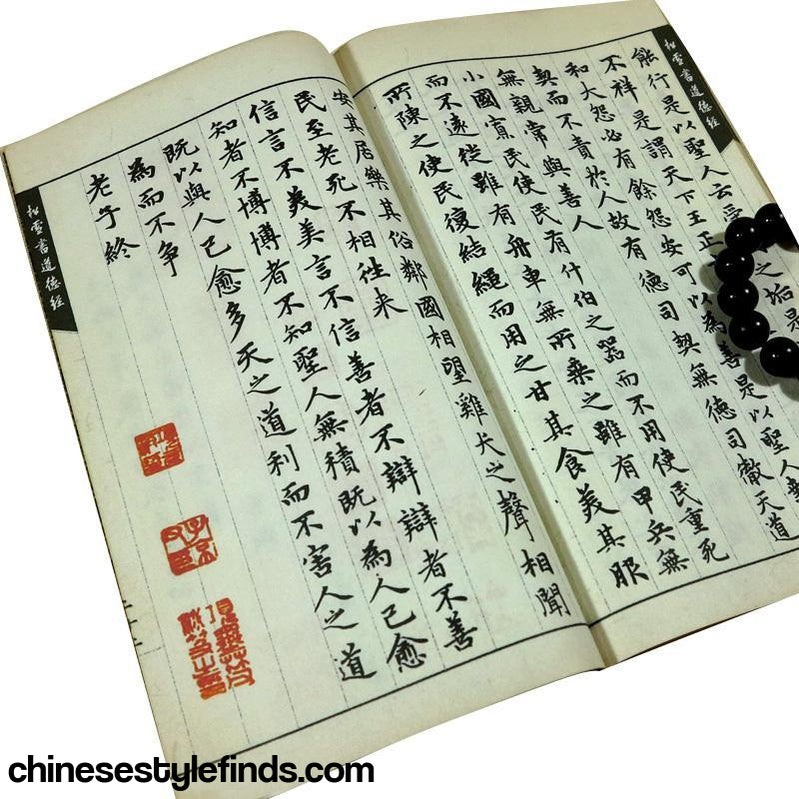 松雪書道德經
能行是以聖人云受之垢是
不祥是謂天下王正
和大怨必有餘怨安可以為善是以聖人
契而不責於人故有德司契無德司徹天道
無親常與善人
小國寡民使民有什伯之器而不用使民重死
而不遠徙雖有舟車無所乗之雖有甲兵無
所陳之使民復結繩而用之甘其食美其服
安其居樂其俗鄰國相望雞犬之聲相聞
民至老死不相往来
信言不美美言不信善者不辯辯者不善
知者不博博者不知聖人無積既以為人己愈
既以與人己愈多天之道利而不害人之道
為而不争
老子終
松雪書道德經
chinesestylefinds.com